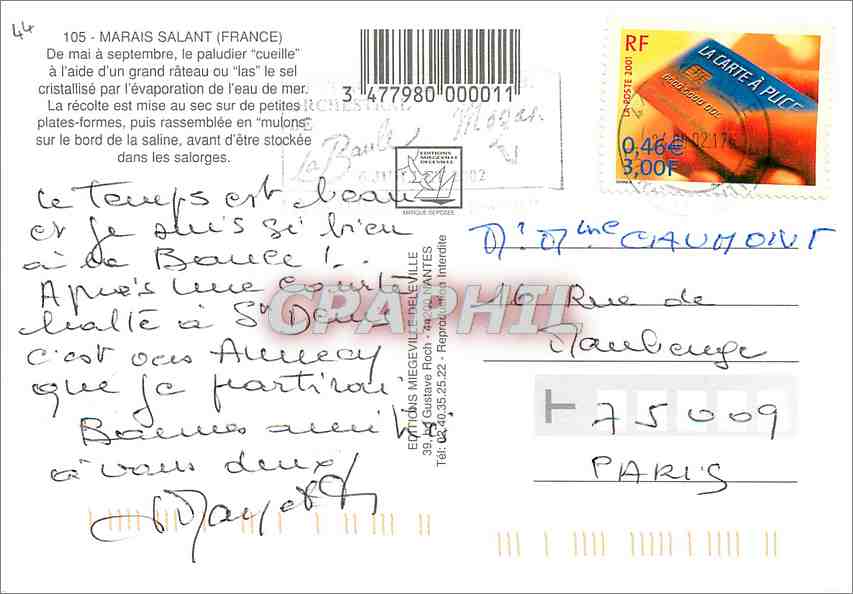 44
105 - MARAIS SALANT (FRANCE)
De mai à septembre, le paludier "cueille"
à l'aide d'un grand râteau ou "las" le sel
cristallisé par l'évaporation de l'eau de mer.
La récolte est mise au sec sur de petites
plates-formes, puis rassemblée en "mulons"
sur le bord de la saline, avant d'être stockée
dans les salorges.
3 477980 000011
La Baule
EDITIONS
MIEGEVILLE
DELEVILLE
MARQUE DEPOSEE
RF
LA POSTE 2001
LA CARTE À PUCE
0,46€
3,00F
Le temps est beau
et je suis si bien
à La Baule !..
Après une courte
halte à St Denis
c'est vers Annecy
que je partirai
Bonnes amitiés
à vous deux
EDITIONS MIEGEVILLE-DELEVILLE
39, Gustave Roch - 44200 NANTES
Tél: 02.40.35.25.22 - Reproduction Interdite
CPAPHIL
Mr Mme CAUMONT
16 Rue de
Maubeuge
75009
PARIS